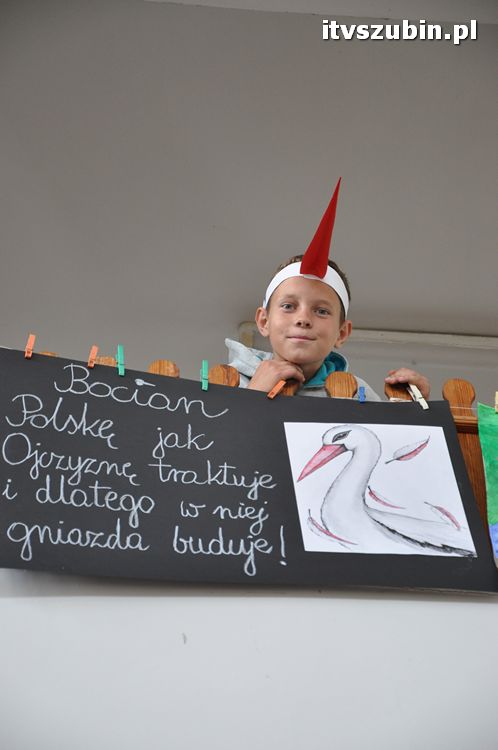 itvszubin.pl
Bocian
Polskę jak
Ojczyznę traktuje
i dlatego w niej
gniazda buduje!